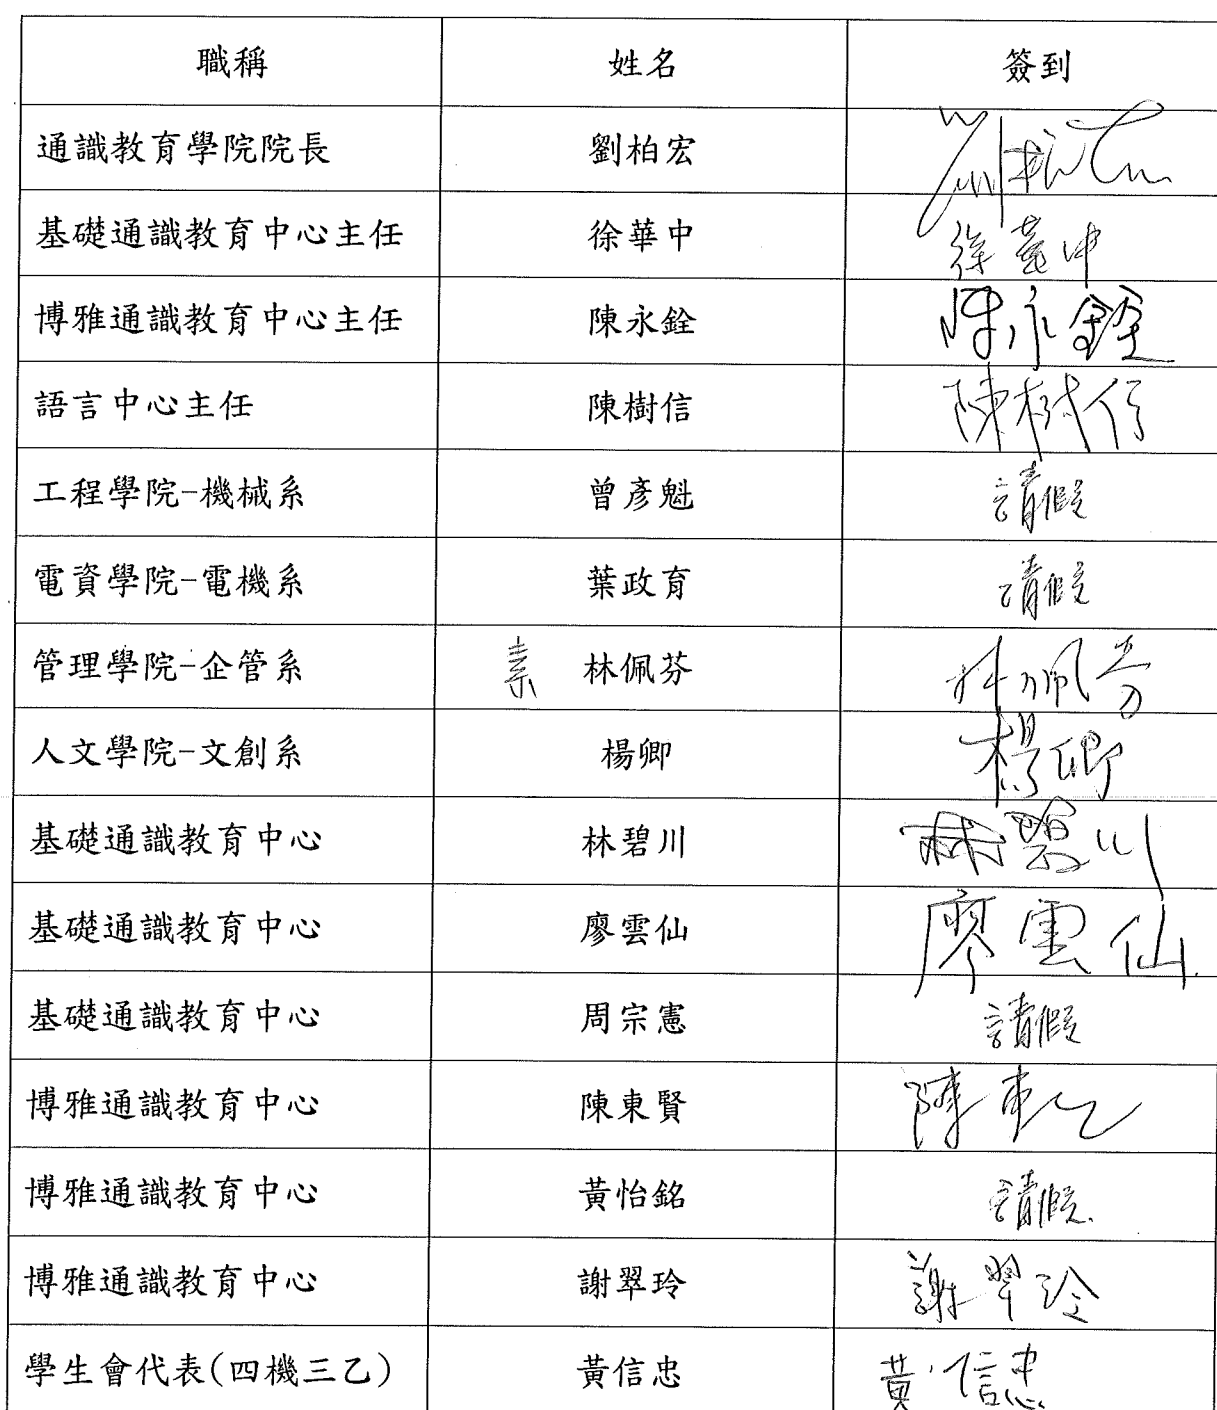 職稱 姓名 簽到
通識教育學院院長 劉柏宏 劉柏宏
基礎通識教育中心主任 徐華中 徐華中
博雅通識教育中心主任 陳永銓 陳永銓
語言中心主任 陳樹信 陳樹信
工程學院-機械系 曾彥魁 請假
電資學院-電機系 葉政育 請假
管理學院-企管系 素 林佩芬 林佩芬
人文學院-文創系 楊卿 楊卿
基礎通識教育中心 林碧川 林碧川
基礎通識教育中心 廖雲仙 廖雲仙
基礎通識教育中心 周宗憲 請假
博雅通識教育中心 陳東賢 陳東賢
博雅通識教育中心 黃怡銘 請假
博雅通識教育中心 謝翠玲 謝翠玲
學生會代表(四機三乙) 黃信忠 黃信忠